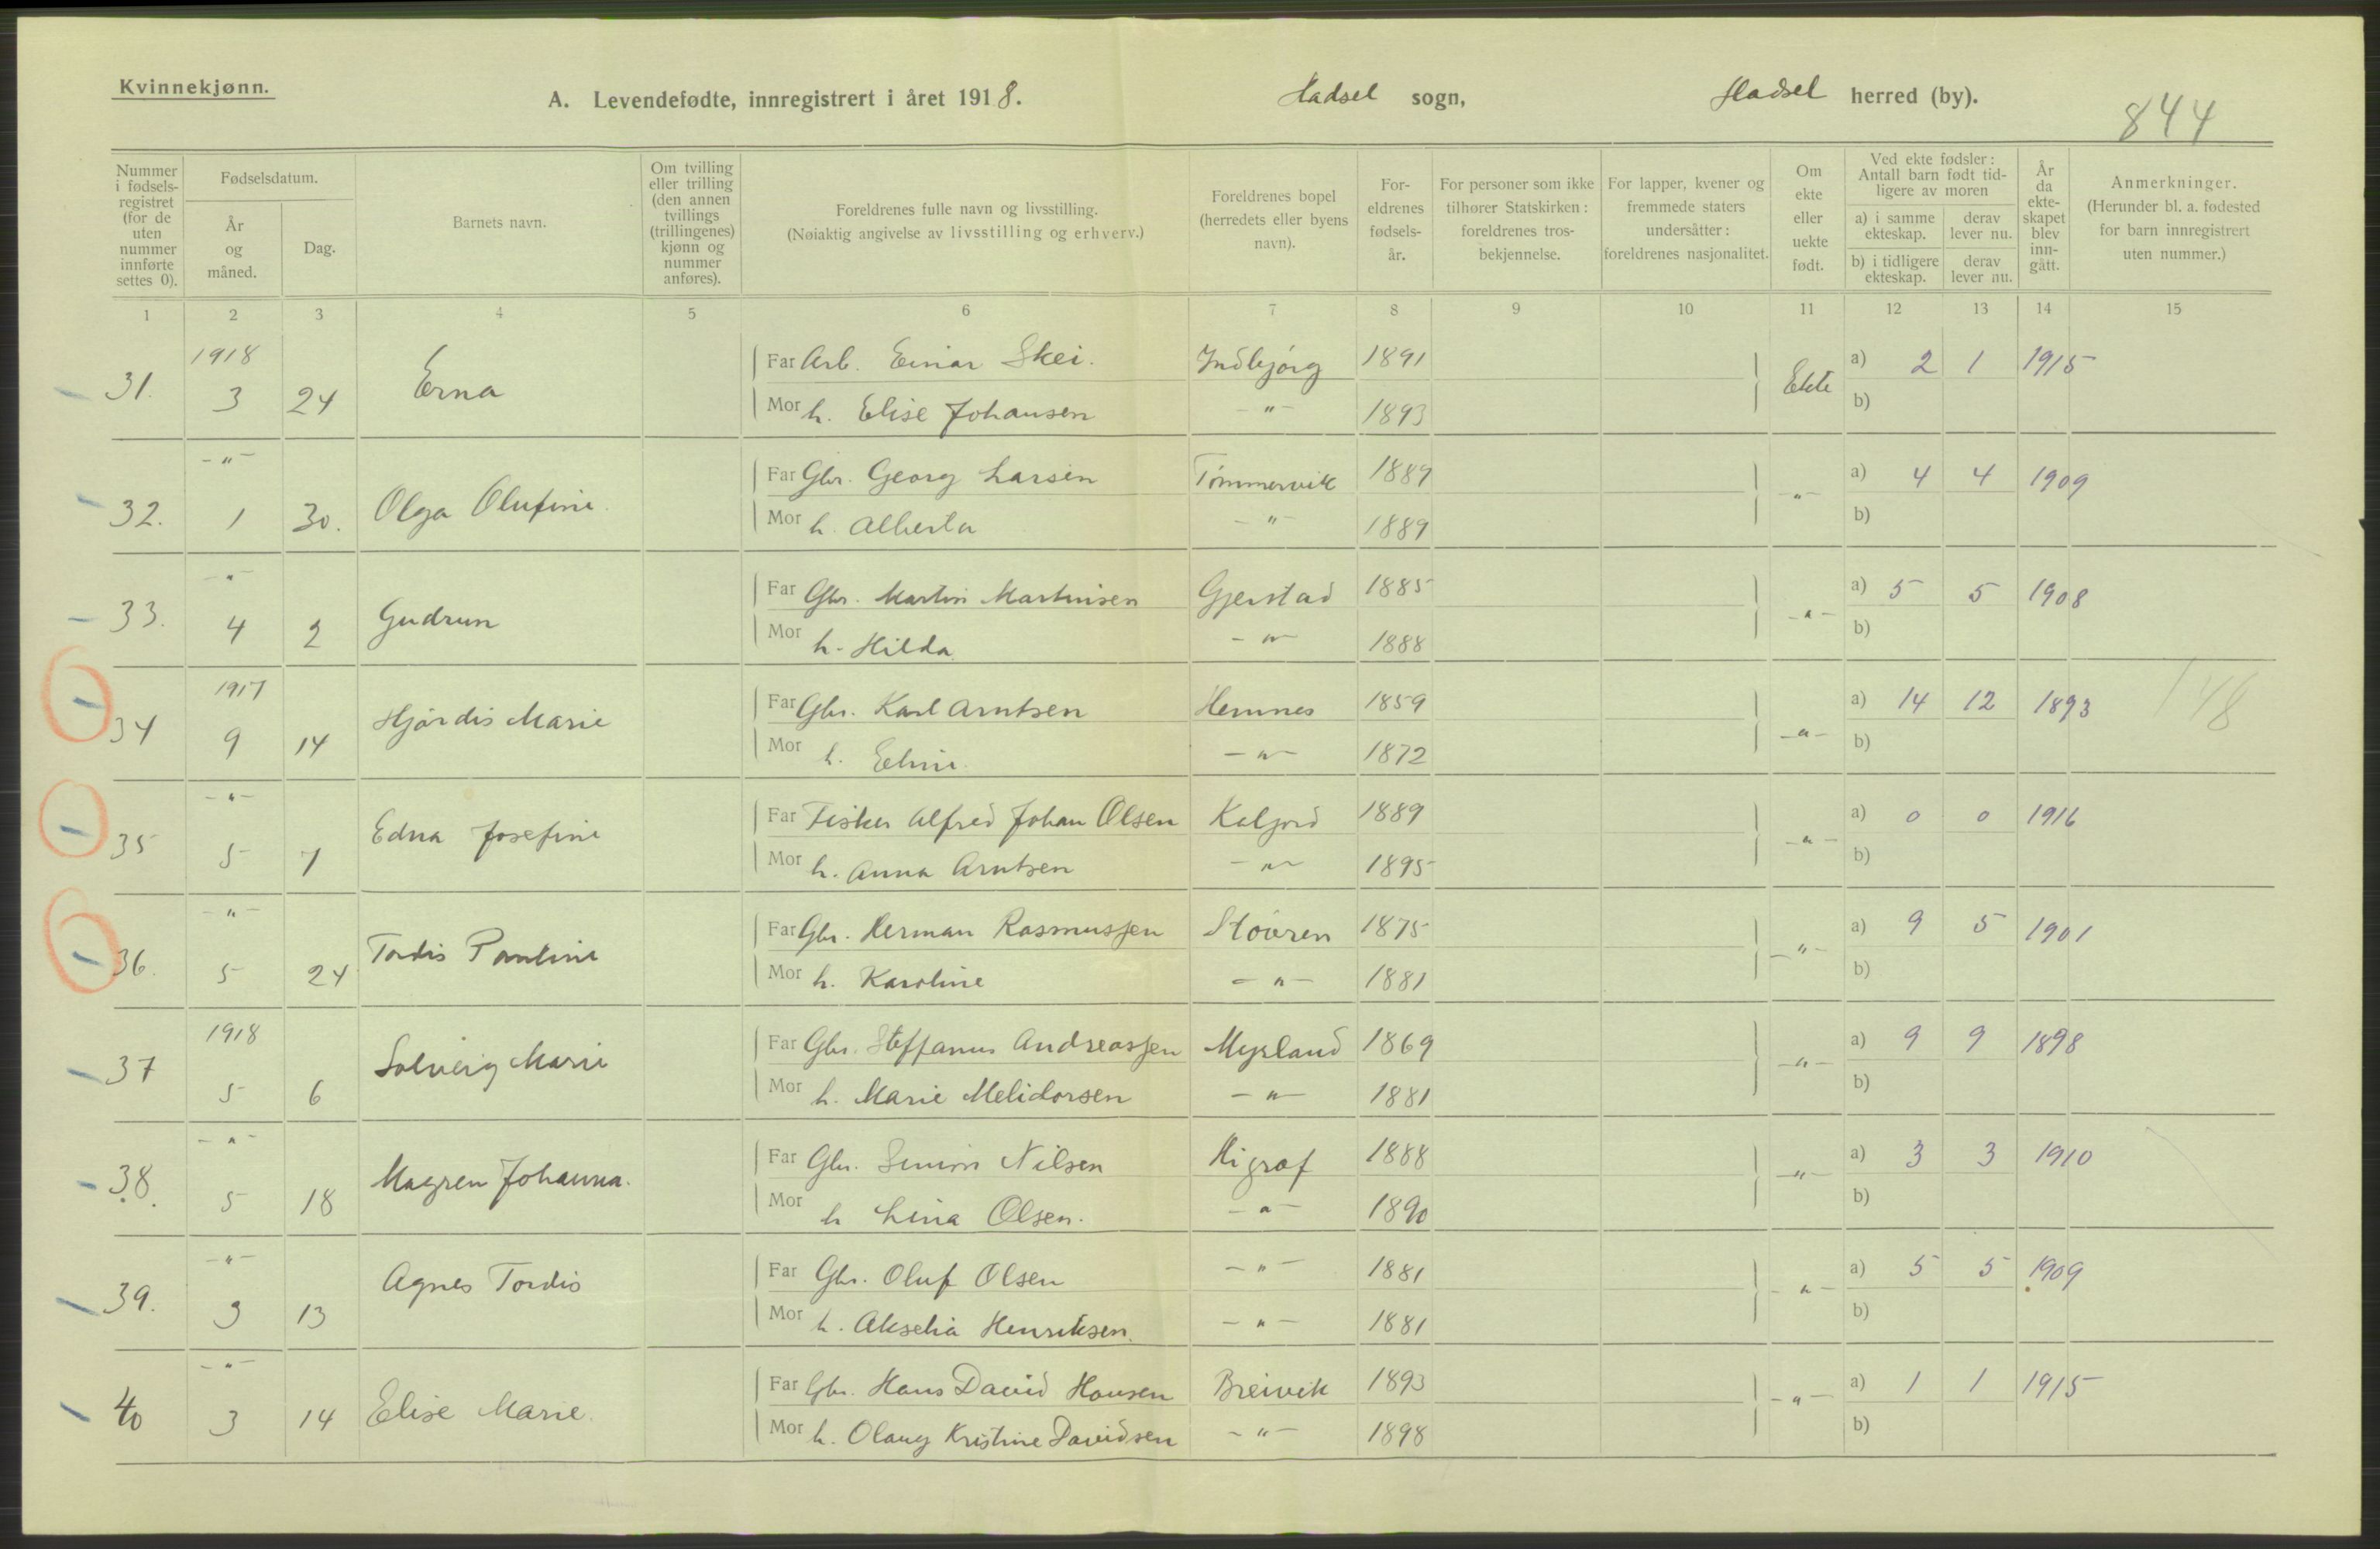 Kvinnekjønn.
A. Levendefødte, innregistrert i året 1918. Hadsel sogn, Hadsel herred (by).
844
Nummer i fødsels-registret (for de uten nummer innførte settes 0).
Fødselsdatum.
År og måned.
Dag.
Barnets navn.
Om tvilling eller trilling (den annen tvillings (trillingenes) kjønn og nummer anføres).
Foreldrenes fulle navn og livsstilling. (Nøiaktig angivelse av livsstilling og erhverv.)
Foreldrenes bopel (herredets eller byens navn).
For-eldrenes fødsels-år.
For personer som ikke tilhører Statskirken: foreldrenes tros-bekjennelse.
For lapper, kvener og fremmede staters undersåtter: foreldrenes nasjonalitet.
Om ekte eller uekte født.
Ved ekte fødsler: Antall barn født tid-ligere av moren
a) i samme ekteskap. derav lever nu.
b) i tidligere ekteskap. derav lever nu.
År da ekte-skapet blev inn-gått.
Anmerkninger. (Herunder bl. a. fødested for barn innregistrert uten nummer.)
1 2 3 4 5 6 7 8 9 10 11 12 13 14 15
31. 1918 3 24 Erna Far Arb. Einar Skei. Indbjørg 1891 Ekte a) 2 1 1915
Mor h. Elise Johansen -"- 1893 b)
32. -"- 1 30. Olga Olufine. Far Gbr. Georg Larsen Tømmervik 1889 -"- a) 4 4 1909
Mor h. Alberta -"- 1889 b)
33. -"- 4 2 Gudrun Far Gbr. Martin Martinsen Gjerstad 1885 -"- a) 5 5 1908
Mor h. Hilda -"- 1888 b)
34 1917 9 14 Hjørdis Marie Far Gbr. Karl Arntsen Hemnes 1859 -"- a) 14 12 1893 148
Mor h. Eline. -"- 1872 b)
35 -"- 5 7 Edna Josefine Far Fisker Alfred Johan Olsen Kaljord 1889 -"- a) 0 0 1916
Mor h. Anna Arntsen -"- 1895 b)
36. -"- 5 24 Tordis Pauline Far Gbr. Herman Rasmussen 1875 -"- a) 9 5 1901
Mor h. Karoline -"- 1881 b)
37 1918 5 6 Solveig Marie Far Gbr. Steffanus Andreassen Myrland 1869 -"- a) 9 9 1898
Mor h. Marie Melidorsen -"- 1881 b)
38. -"- 5 18 Magren Johanna. Far Gbr. Nilsen Higraf 1888 -"- a) 3 3 1910
Mor h Lina Olsen. -"- 1890 b)
39. -"- 3 13 Agnes Tordis Far Gbr. Oluf Olsen -"- 1881 -"- a) 5 5 1909
Mor h. Akselia Henriksen. -"- 1881 b)
40 -"- 3 14 Elise Marie. Far Gbr. Hans David Hansen Breivik 1893 -"- a) 1 1 1915
Mor h. Olaug Kristine Davidsen -"- 1898 b)